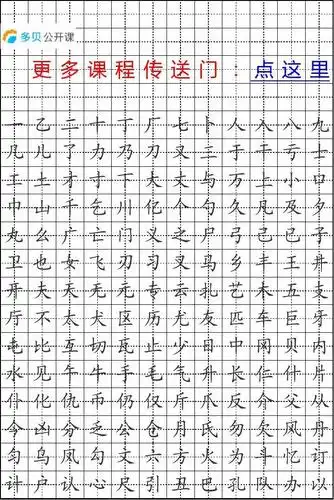 多贝公开课
更多课程传送门：点这里
一乙二十丁厂七卜人入八九
几儿了力乃刀又三于干亏士
工土才寸下大丈与万上小口
巾山千乞川亿个勺久凡及夕
丸么广亡门义之尸弓己已子
卫也女飞刃习叉马乡丰王井
开夫天无元专云扎艺木五支
厅不太犬区历尤友匹车巨牙
屯比互切瓦止少日中冈贝内
水见午牛手毛气升长仁什片
仆化仇币仍仅斤爪反介父从
今凶分乏公仓月氏勿欠风丹
匀乌凤勾文六方火为斗忆订
计户认心尺引丑巴孔队办以